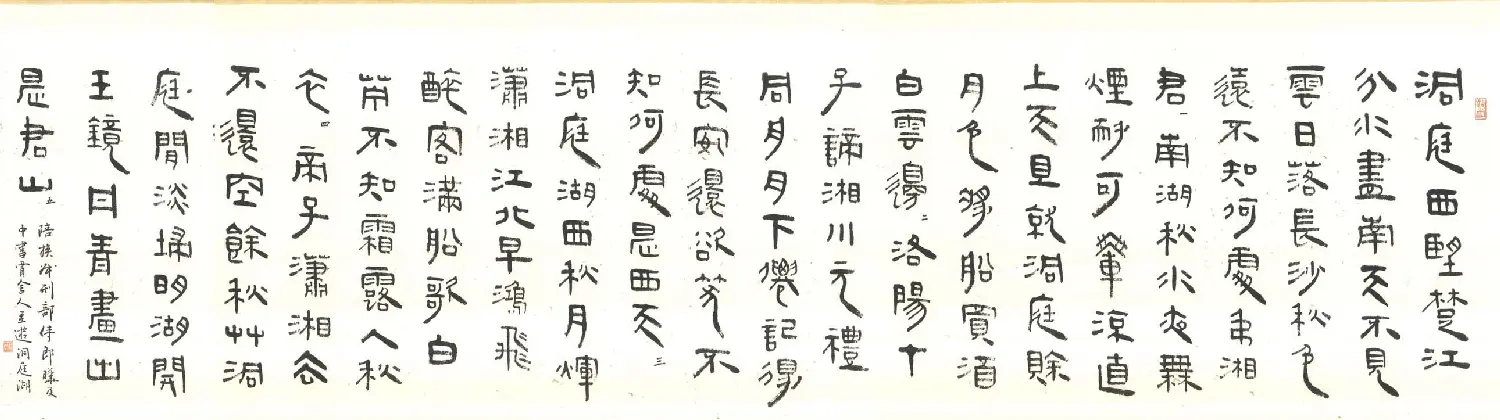 洞庭西望楚江
分水盡南天不見
雲日落長沙秋色
遠不知何處弔湘
君一南湖秋水夜無
煙耐可乘流直
上天且就洞庭賒
月色將船買酒
白雲邊二洛陽才
子謫湘川元禮
同舟月下僊記得
長安還欲笑不
知何處是西天三
洞庭湖西秋月輝
瀟湘江北早鴻飛
醉客滿船歌白
苧不知霜露入秋
衣四帝子瀟湘去
不還空餘秋草洞
庭間淡掃明湖開
玉鏡丹青畫出
是君山五
陪族叔刑部侍郎曄及
中書賈舍人至遊洞庭湖